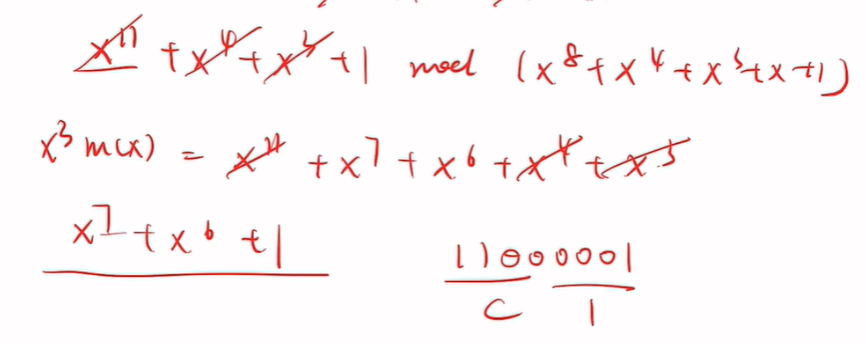 x^11 + x^4 + x^3 + 1 mod (x^8 + x^4 + x^3 + x + 1)
x^3 m(x) = x^11 + x^7 + x^6 + x^4 + x^3
x^7 + x^6 + 1
11000001
C 1